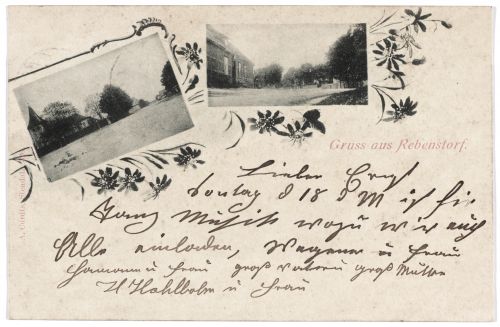 Gruss aus Rebenstorf.
Lieber
Sontag d 18 d M ist hir
Tanz Musik wozu wir euch
Alle einladen, Wagener u Frau
Hamann u Frau groß vater u groß Mutter
H Hahlbohm u Frau